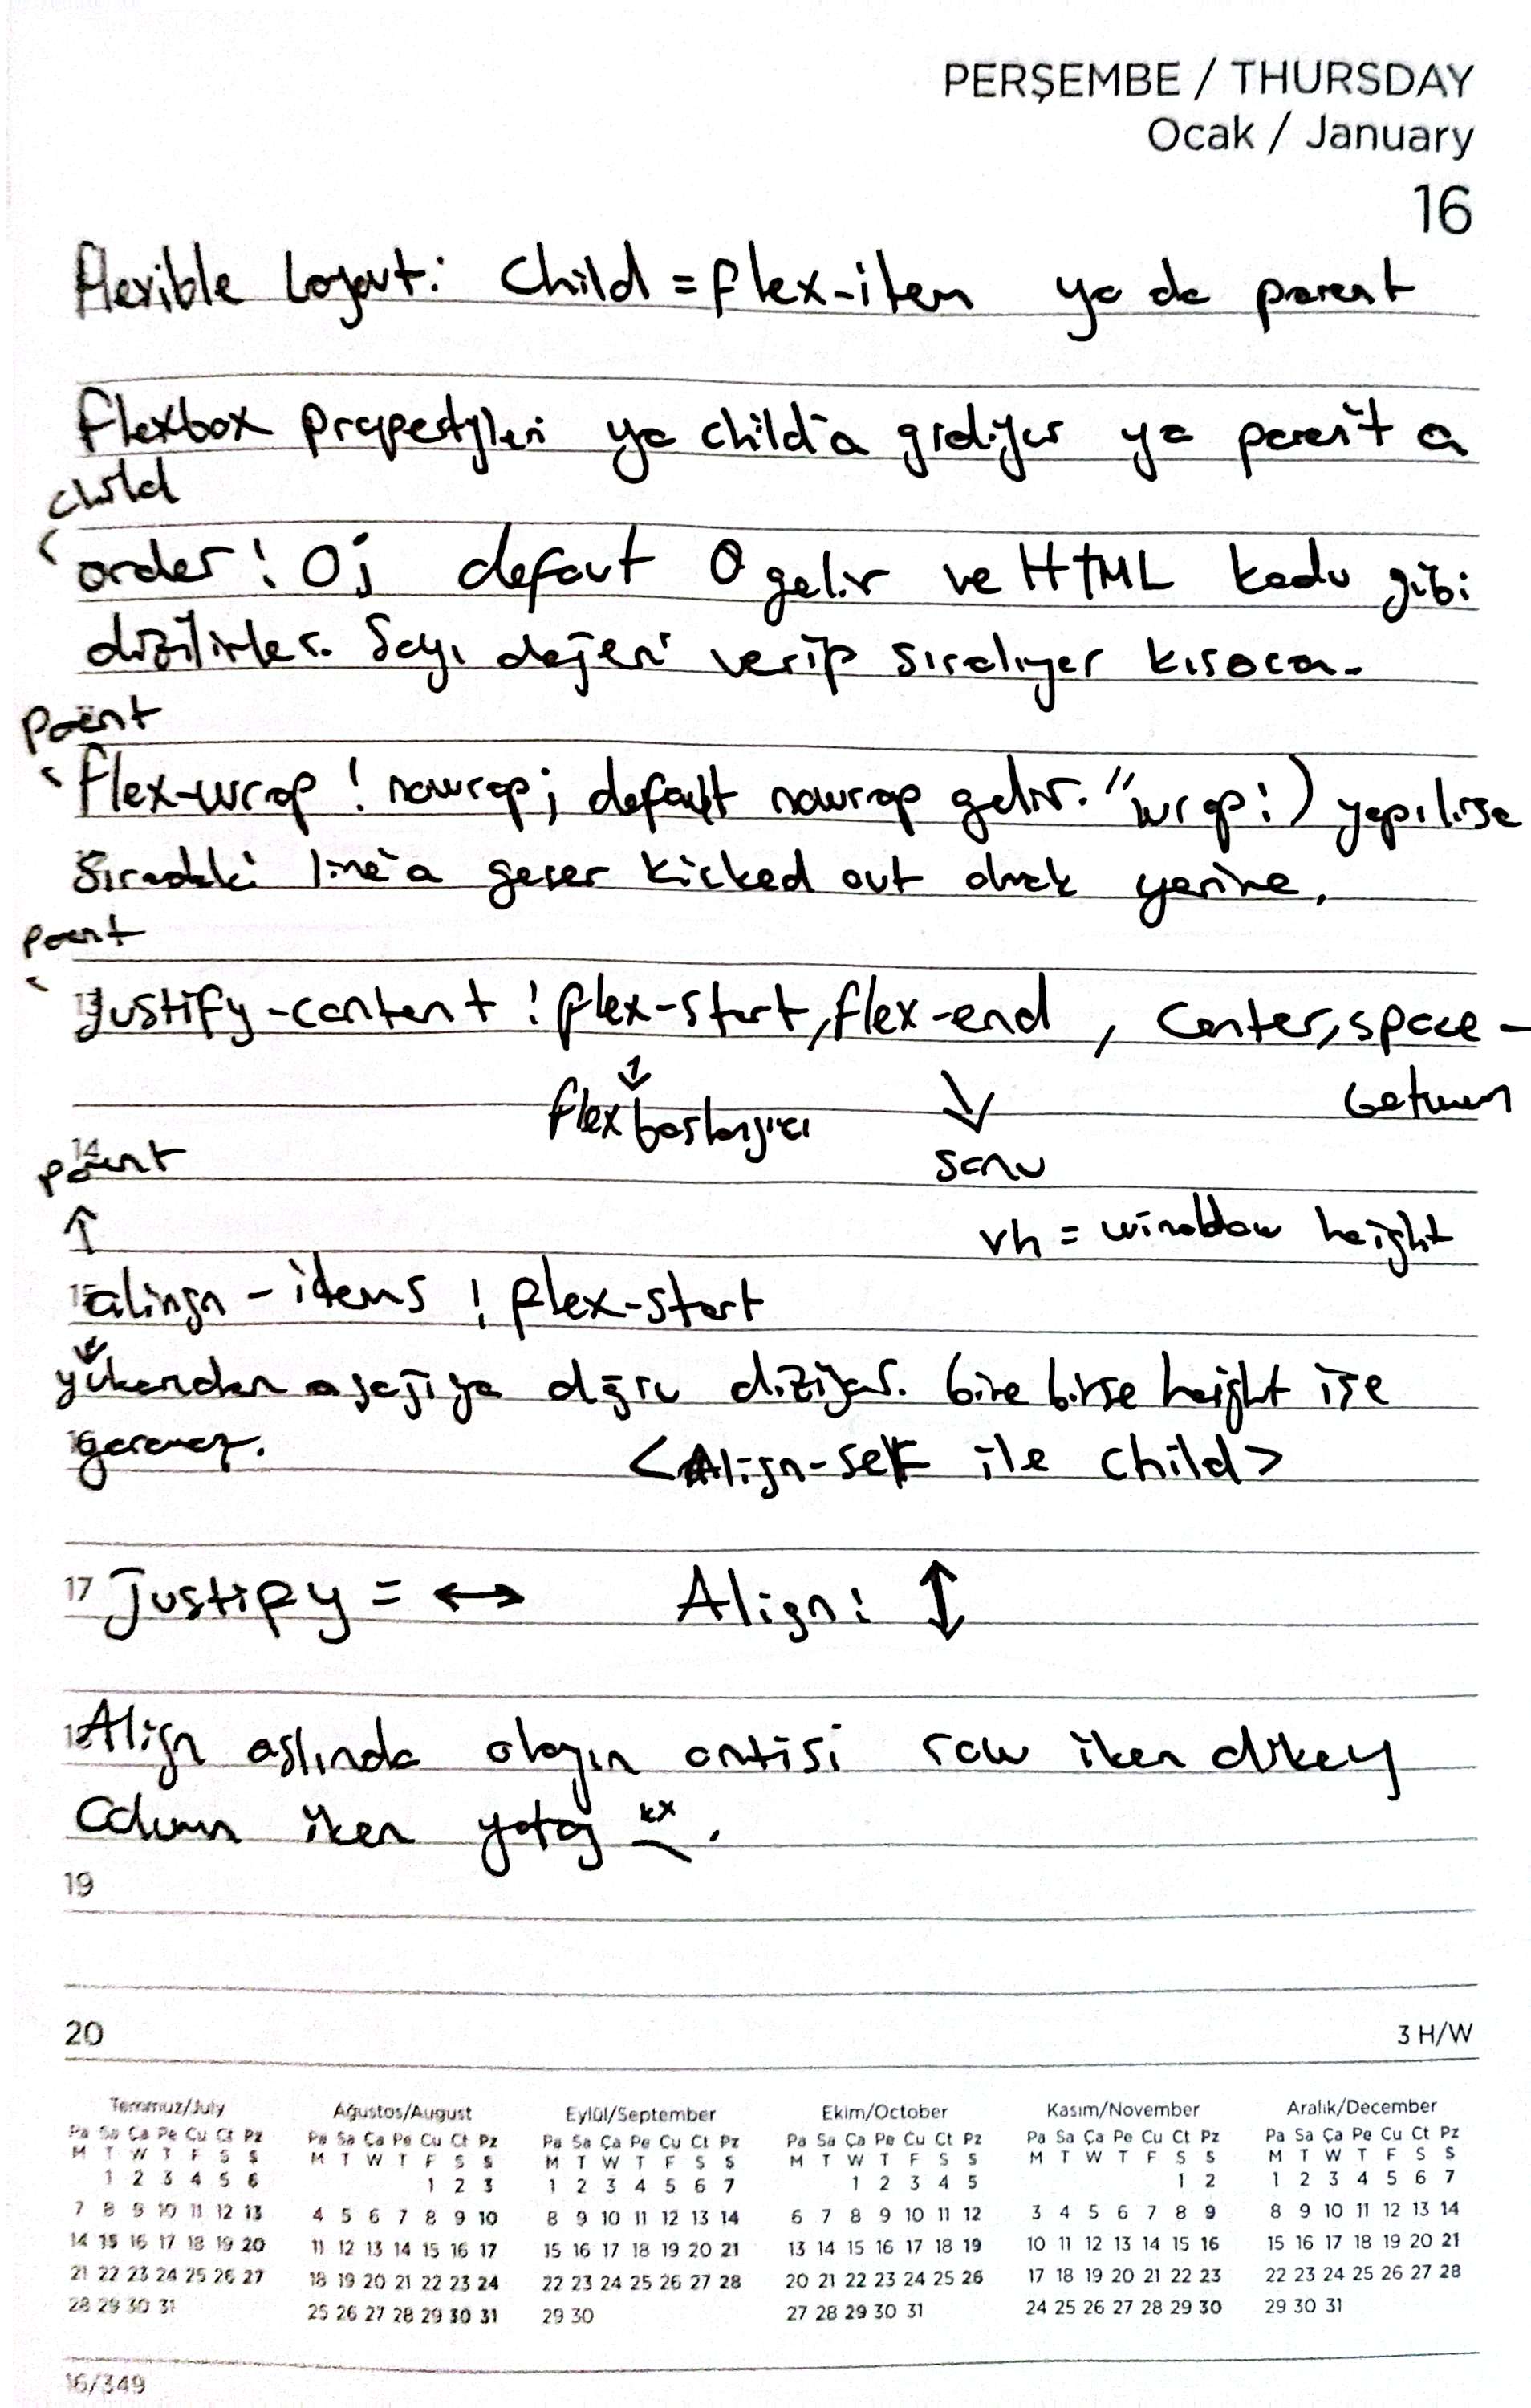 PERŞEMBE / THURSDAY
Ocak / January
16
flexible Layout: Child = flex-item ya da parent
Flexbox propertyleri ya child'a giriliyor ya parent a
child
order : 0; defaut 0 gelir ve HTML kodu gibi
dizilirler. Sayı değeri verip sıralıyor kısaca.
parent
flex-wrap : nowrap; default nowrap gelir. "wrap:) yapılırsa
Sıradaki line'a geçer kicked out olmak yerine.
parent
13
justify-content : flex-start, flex-end , center, space-
between
flex başlangıcı
sonu
14
parent
vh = window height
15
alingn-items : flex-start
yukarıdan aşağıya doğru diziyor. bire birse height işe
16
yaramaz.
<Align-self ile child>
17 Justify = ↔ Align: ↕
18
Align aslında olayın antisi row iken dikey
Column iken yatay
19
20
3 H/W
Temmuz/July
Pa Sa Ça Pe Cu Ct Pz
M T W T F S S
1 2 3 4 5 6
7 8 9 10 11 12 13
14 15 16 17 18 19 20
21 22 23 24 25 26 27
28 29 30 31
Ağustos/August
Pa Sa Ça Pe Cu Ct Pz
M T W T F S S
1 2 3
4 5 6 7 8 9 10
11 12 13 14 15 16 17
18 19 20 21 22 23 24
25 26 27 28 29 30 31
Eylül/September
Pa Sa Ça Pe Cu Ct Pz
M T W T F S S
1 2 3 4 5 6 7
8 9 10 11 12 13 14
15 16 17 18 19 20 21
22 23 24 25 26 27 28
29 30
Ekim/October
Pa Sa Ça Pe Cu Ct Pz
M T W T F S S
1 2 3 4 5
6 7 8 9 10 11 12
13 14 15 16 17 18 19
20 21 22 23 24 25 26
27 28 29 30 31
Kasım/November
Pa Sa Ça Pe Cu Ct Pz
M T W T F S S
1 2
3 4 5 6 7 8 9
10 11 12 13 14 15 16
17 18 19 20 21 22 23
24 25 26 27 28 29 30
Aralık/December
Pa Sa Ça Pe Cu Ct Pz
M T W T F S S
1 2 3 4 5 6 7
8 9 10 11 12 13 14
15 16 17 18 19 20 21
22 23 24 25 26 27 28
29 30 31
16/349